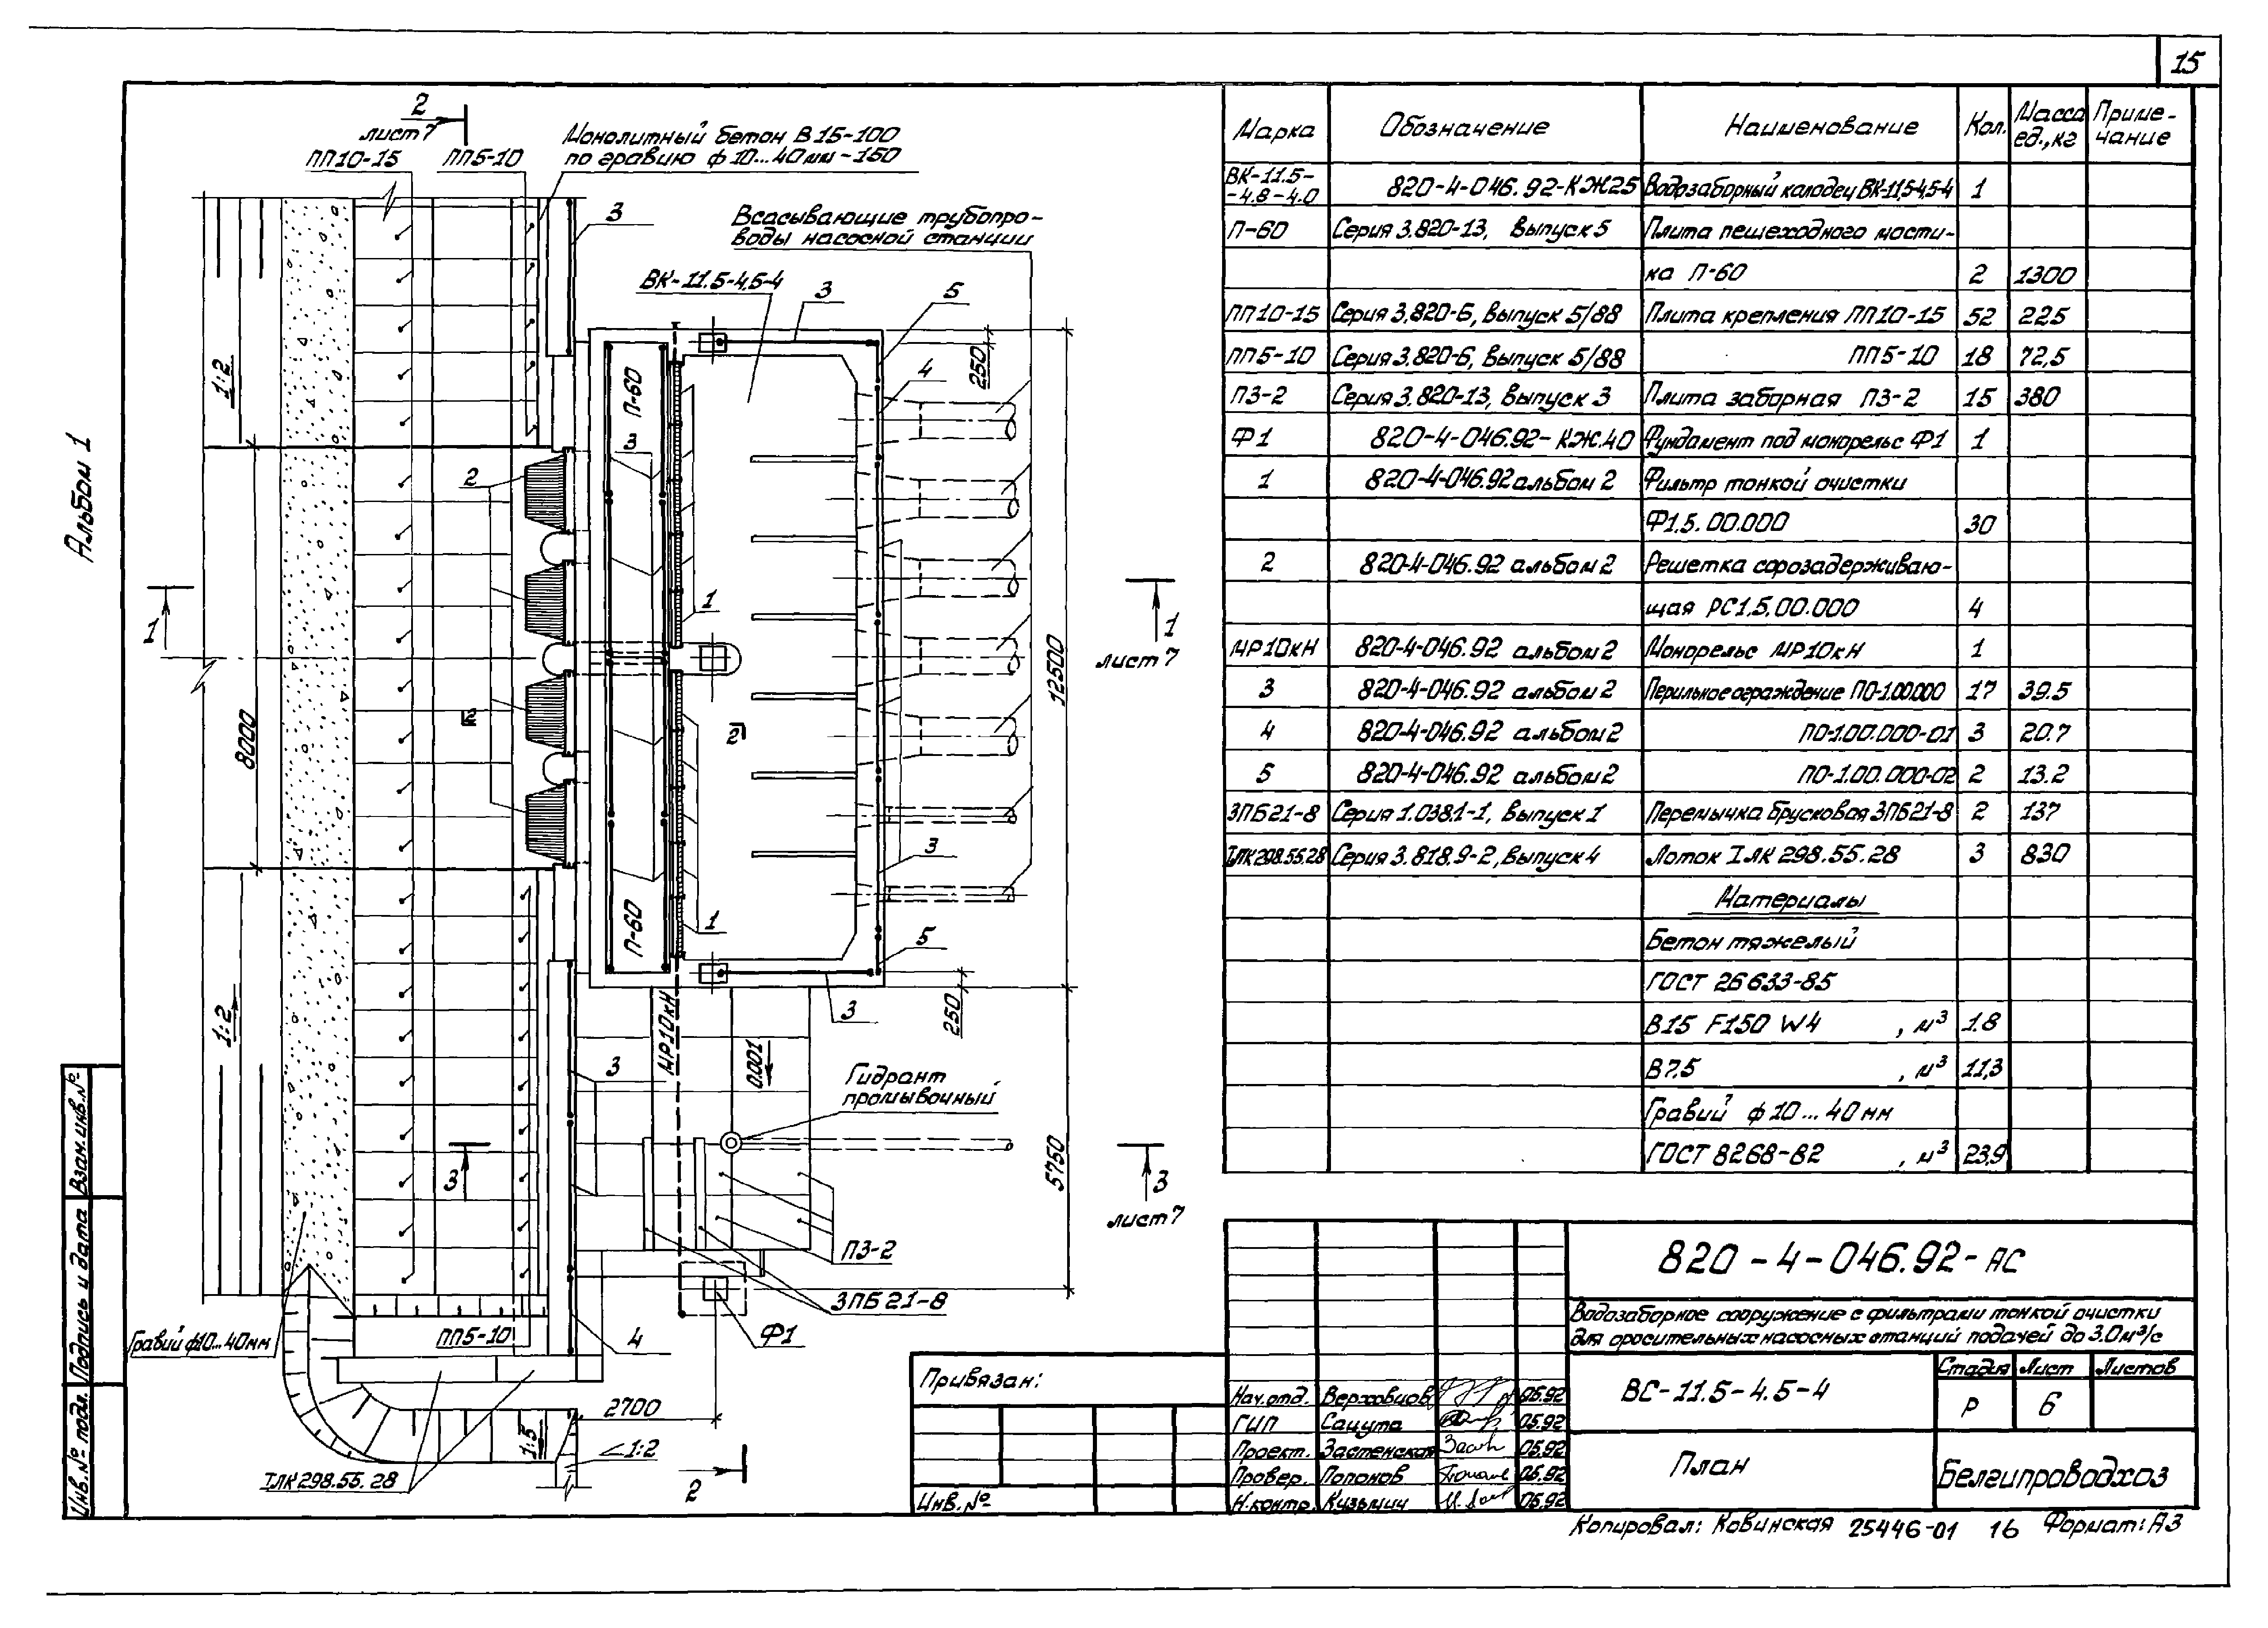 15
Альбом 1
2
лист 7
ПП10-15
ПП5-10
Монолитный бетон В15-100
по гравию ф 10...40мм-150
3
Всасывающие трубопро-
воды насосной станции
ВК-11.5-4,5-4
3
5
4
250
1:2
П-60
3
2
1
1
1
лист 7
12500
8000
2
2
1
3
П-60
5
250
3
1:2
МР10кН
0.001
3
Гидрант
промывочный
3
3
лист 7
5750
ПЗ-2
3ПБ21-8
Ф1
Гравий ф10...40мм
ПП5-10
4
2700
1:5
1:2
ІЛК298.55.28
2
Марка Обозначение Наименование Кол. Масса ед.,кг Приме-чание
ВК-11.5-
-4,8-4.0 820-4-046.92-КЖ25 Водозаборный колодец ВК-11,5-4,5-4 1
П-60 Серия 3.820-13, Выпуск 5 Плита пешеходного мости-
ка П-60 2 1300
ПП10-15 Серия 3.820-6, Выпуск 5/88 Плита крепления ПП10-15 52 225
ПП5-10 Серия 3.820-6, Выпуск 5/88 ПП5-10 18 72,5
ПЗ-2 Серия 3.820-13, Выпуск 3 Плита заборная ПЗ-2 15 380
Ф1 820-4-046.92-КЖ.40 Фундамент под монорельс Ф1 1
1 820-4-046.92 альбом 2 Фильтр тонкой очистки
Ф1.5.00.000 30
2 820-4-046.92 альбом 2 Решетка сорозадерживаю-
щая РС1.5.00.000 4
МР10кН 820-4-046.92 альбом 2 Монорельс МР10кН 1
3 820-4-046.92 альбом 2 Перильное ограждение ПО-1.00.000 17 39.5
4 820-4-046.92 альбом 2 ПО-1.00.000-01 3 20.7
5 820-4-046.92 альбом 2 ПО-1.00.000-02 2 13.2
3ПБ21-8 Серия 1.038.1-1, Выпуск 1 Перемычка брусковая 3ПБ21-8 2 137
ІЛК298.55.28 Серия 3.818.9-2, Выпуск 4 Лоток ІЛК 298.55.28 3 830
Материалы
Бетон тяжелый
ГОСТ 26633-85
В15 F150 W4 , м³ 1.8
В7.5 , м³ 11,3
Гравий ф 10...40мм
ГОСТ 8268-82 , м³ 23,9
820-4-046.92-АС
Водозаборное сооружение с фильтрами тонкой очистки
для оросительных насосных станций подачей до 3.0м³/с
ВС-11.5-4.5-4
Стадия Лист Листов
Р 6
План
Белгипроводхоз
Привязан:
Инв.№
Нач.отд. Верховцов 05.92
ГИП Сацута 05.92
Проект. Застенская 05.92
Провер. Попонов 05.92
Н.контр. Кузьмич 05.92
Взам.инв.№
Подпись и дата
Инв.№ подл.
Копировал: Ковинская 25446-01 16 Формат: А3